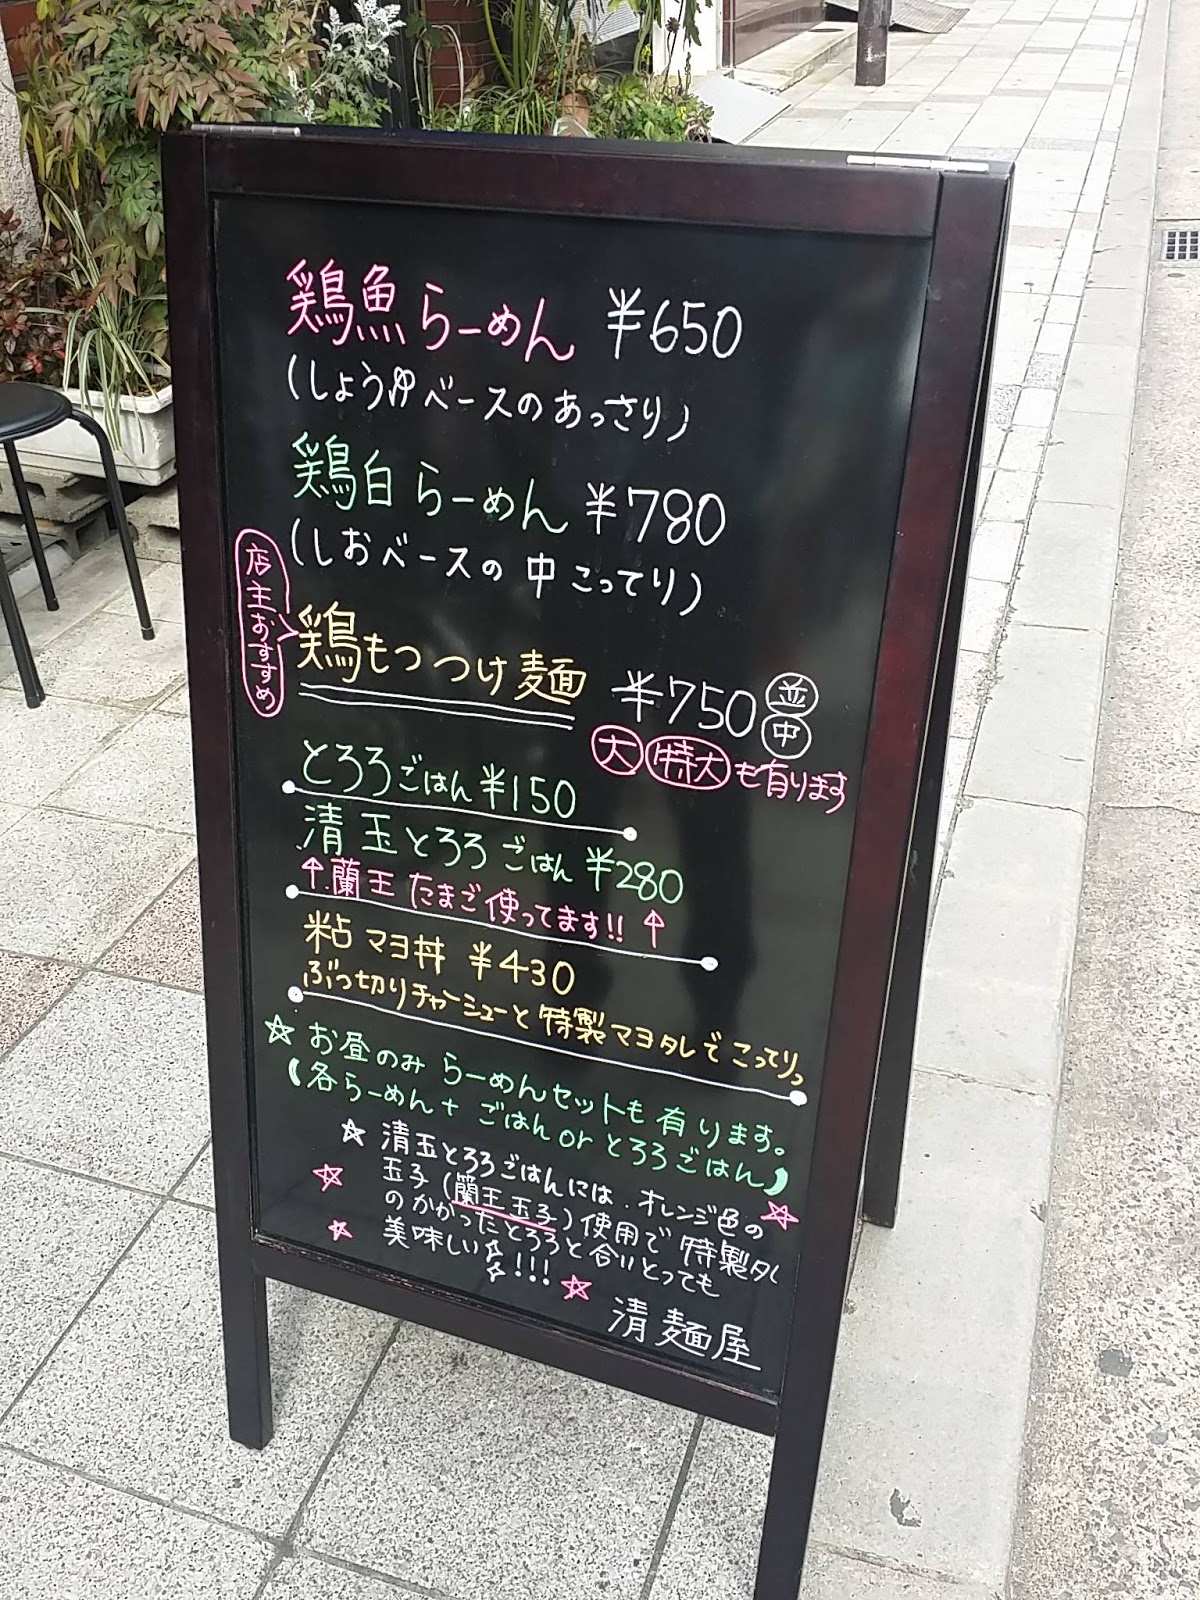 鶏魚らーめん ¥650
(しょうゆベースのあっさり)
鶏白らーめん ¥780
(しおベースの中こってり)
店主おすすめ
鶏もつつけ麺 ¥750 並 中
大 特大 も有ります
とろろごはん ¥150
清玉とろろごはん ¥280
↑蘭王たまご使ってます!!↑
粘マヨ丼 ¥430
ぶつ切りチャーシューと特製マヨタレでこってりっ
☆お昼のみらーめんセットも有ります。
(各らーめん+ごはんorとろろごはん)
☆清玉とろろごはんには、オレンジ色の
玉子(蘭王玉子)使用で特製タレ
のかかったとろろと合いとっても
美味しい☆!!!
清麺屋